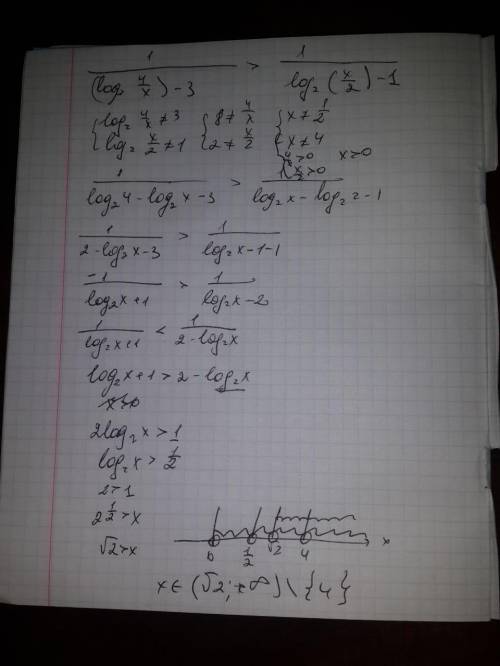 1/((log₂ 4/x) - 3) > 1/(log₂ (x/2) - 1)
{log₂ 4/x ≠ 3 {8 ≠ 4/x {x ≠ 1/2
log₂ x/2 ≠ 1 2 ≠ x/2 x ≠ 4
4/x > 0 x > 0
x/2 > 0
1/(log₂4 - log₂x - 3) > 1/(log₂x - log₂2 - 1)
1/(2 - log₂x - 3) > 1/(log₂x - 1 - 1)
-1/(log₂x + 1) > 1/(log₂x - 2)
1/(log₂x + 1) < 1/(2 - log₂x)
log₂x + 1 > 2 - log₂x
2log₂x > 1
log₂x > 1/2
2^(1/2) > x
√2 > x
0 1/2 √2 4 x
x ∈ (√2; +∞) \ {4}